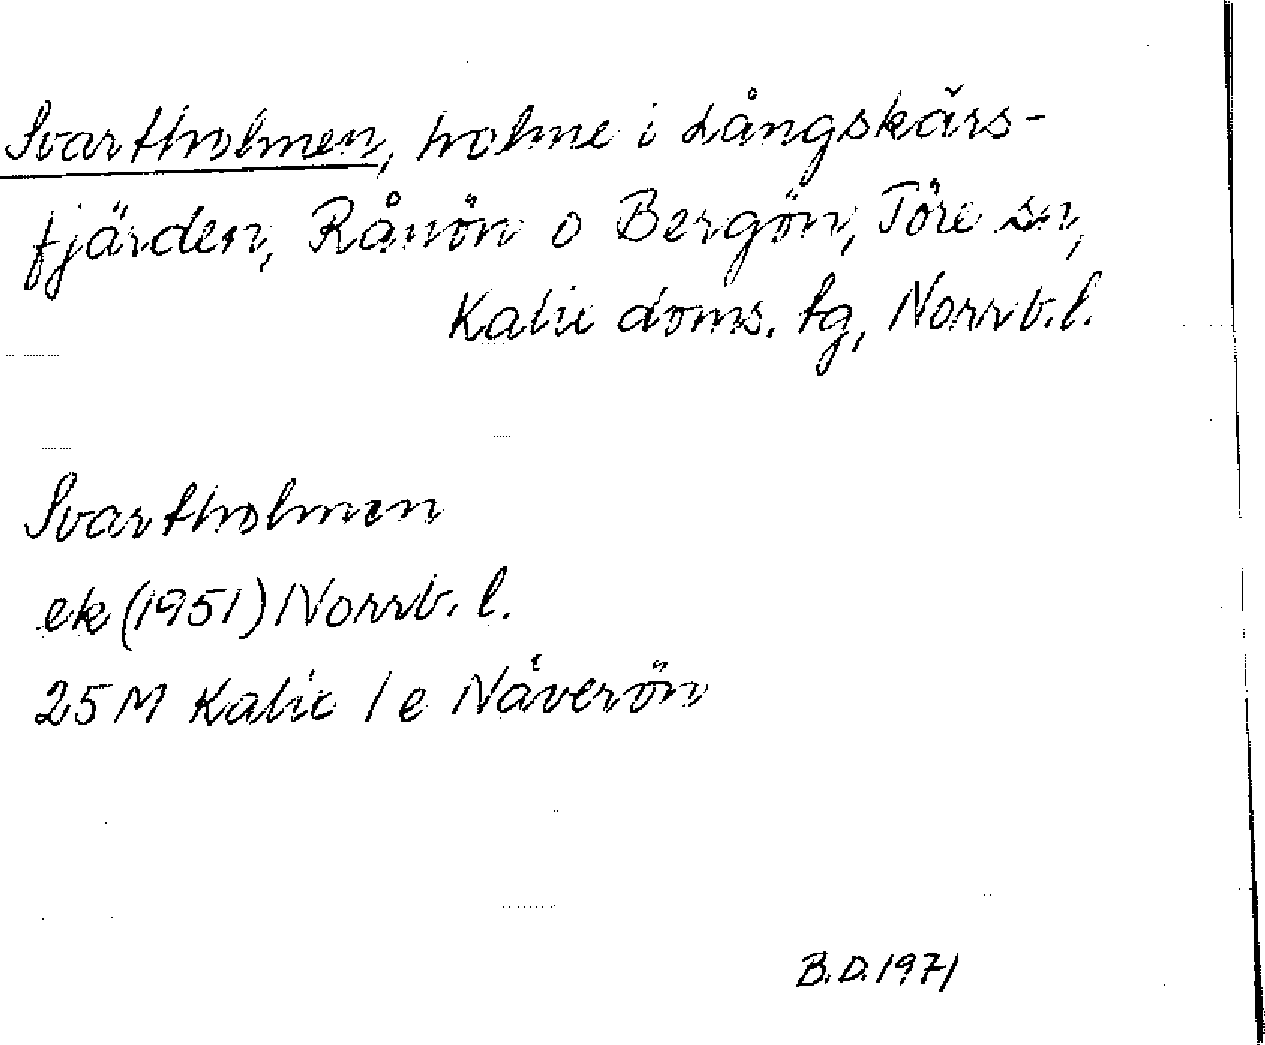 Svartholmen, holme i Långskärs-
fjärden, Rånön o Bergön, Töre sn,
Kalix doms. tg, Norrb. l.
Svartholmen
ek (1951) Norrb. l.
25 M Kalix 1 e Näverön
B.D. 1971